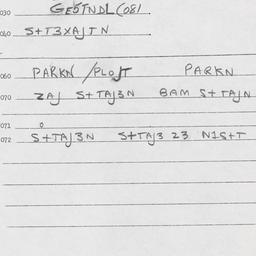 030 GEØTNDL (081
040 S+T3XAJTN
060 PARKN /PLOJT PARKN
070 ZAJ S+TAJ3N 8AM S+TAJN
071 0
072 S+TAJ3N S+TAJ3 23 N1S+T